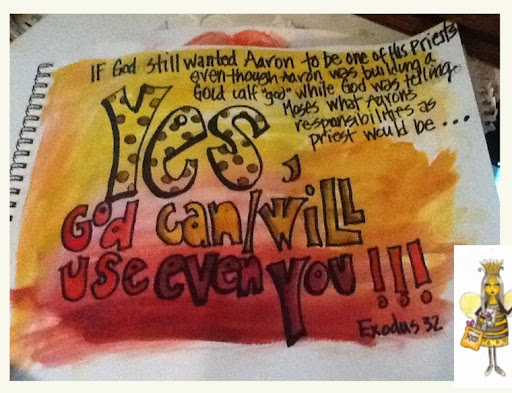 IF God still wanted Aaron to be one of His Priests
even though Aaron was building a
Gold calf "god" while God was telling
Moses what Aaron's
responsibilities as
priest would be...
Yes,
God can/will
use even you!!!
Exodus 32